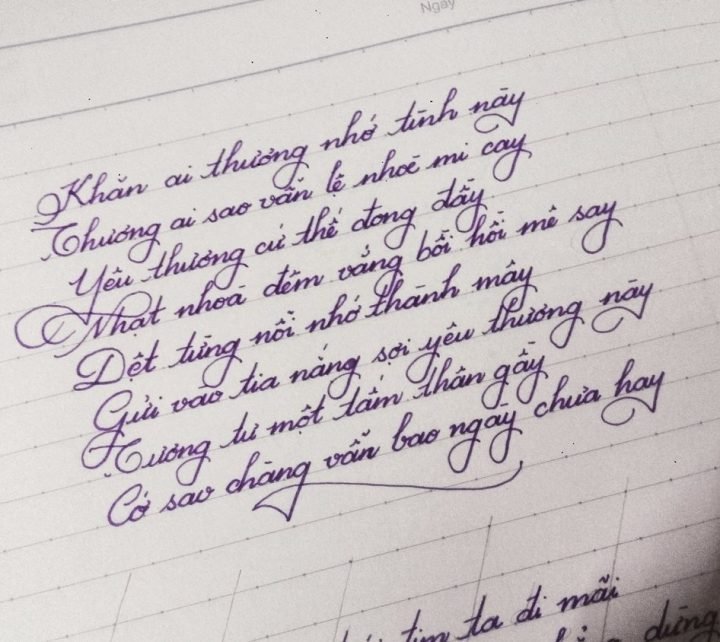 Ngày
Khăn ai thương nhớ tình này
Thương ai sao vẫn lệ nhoè mi cay
Yêu thương cứ thế đong đầy
Nhạt nhoà đêm vắng bồi hồi mê say
Dệt từng nỗi nhớ thành mây
Gửi vào tia nắng sợi yêu thương này
Tương tư một tấm thân gầy
Cớ sao chàng vẫn bao ngày chưa hay
tim ta đi mãi
dừng